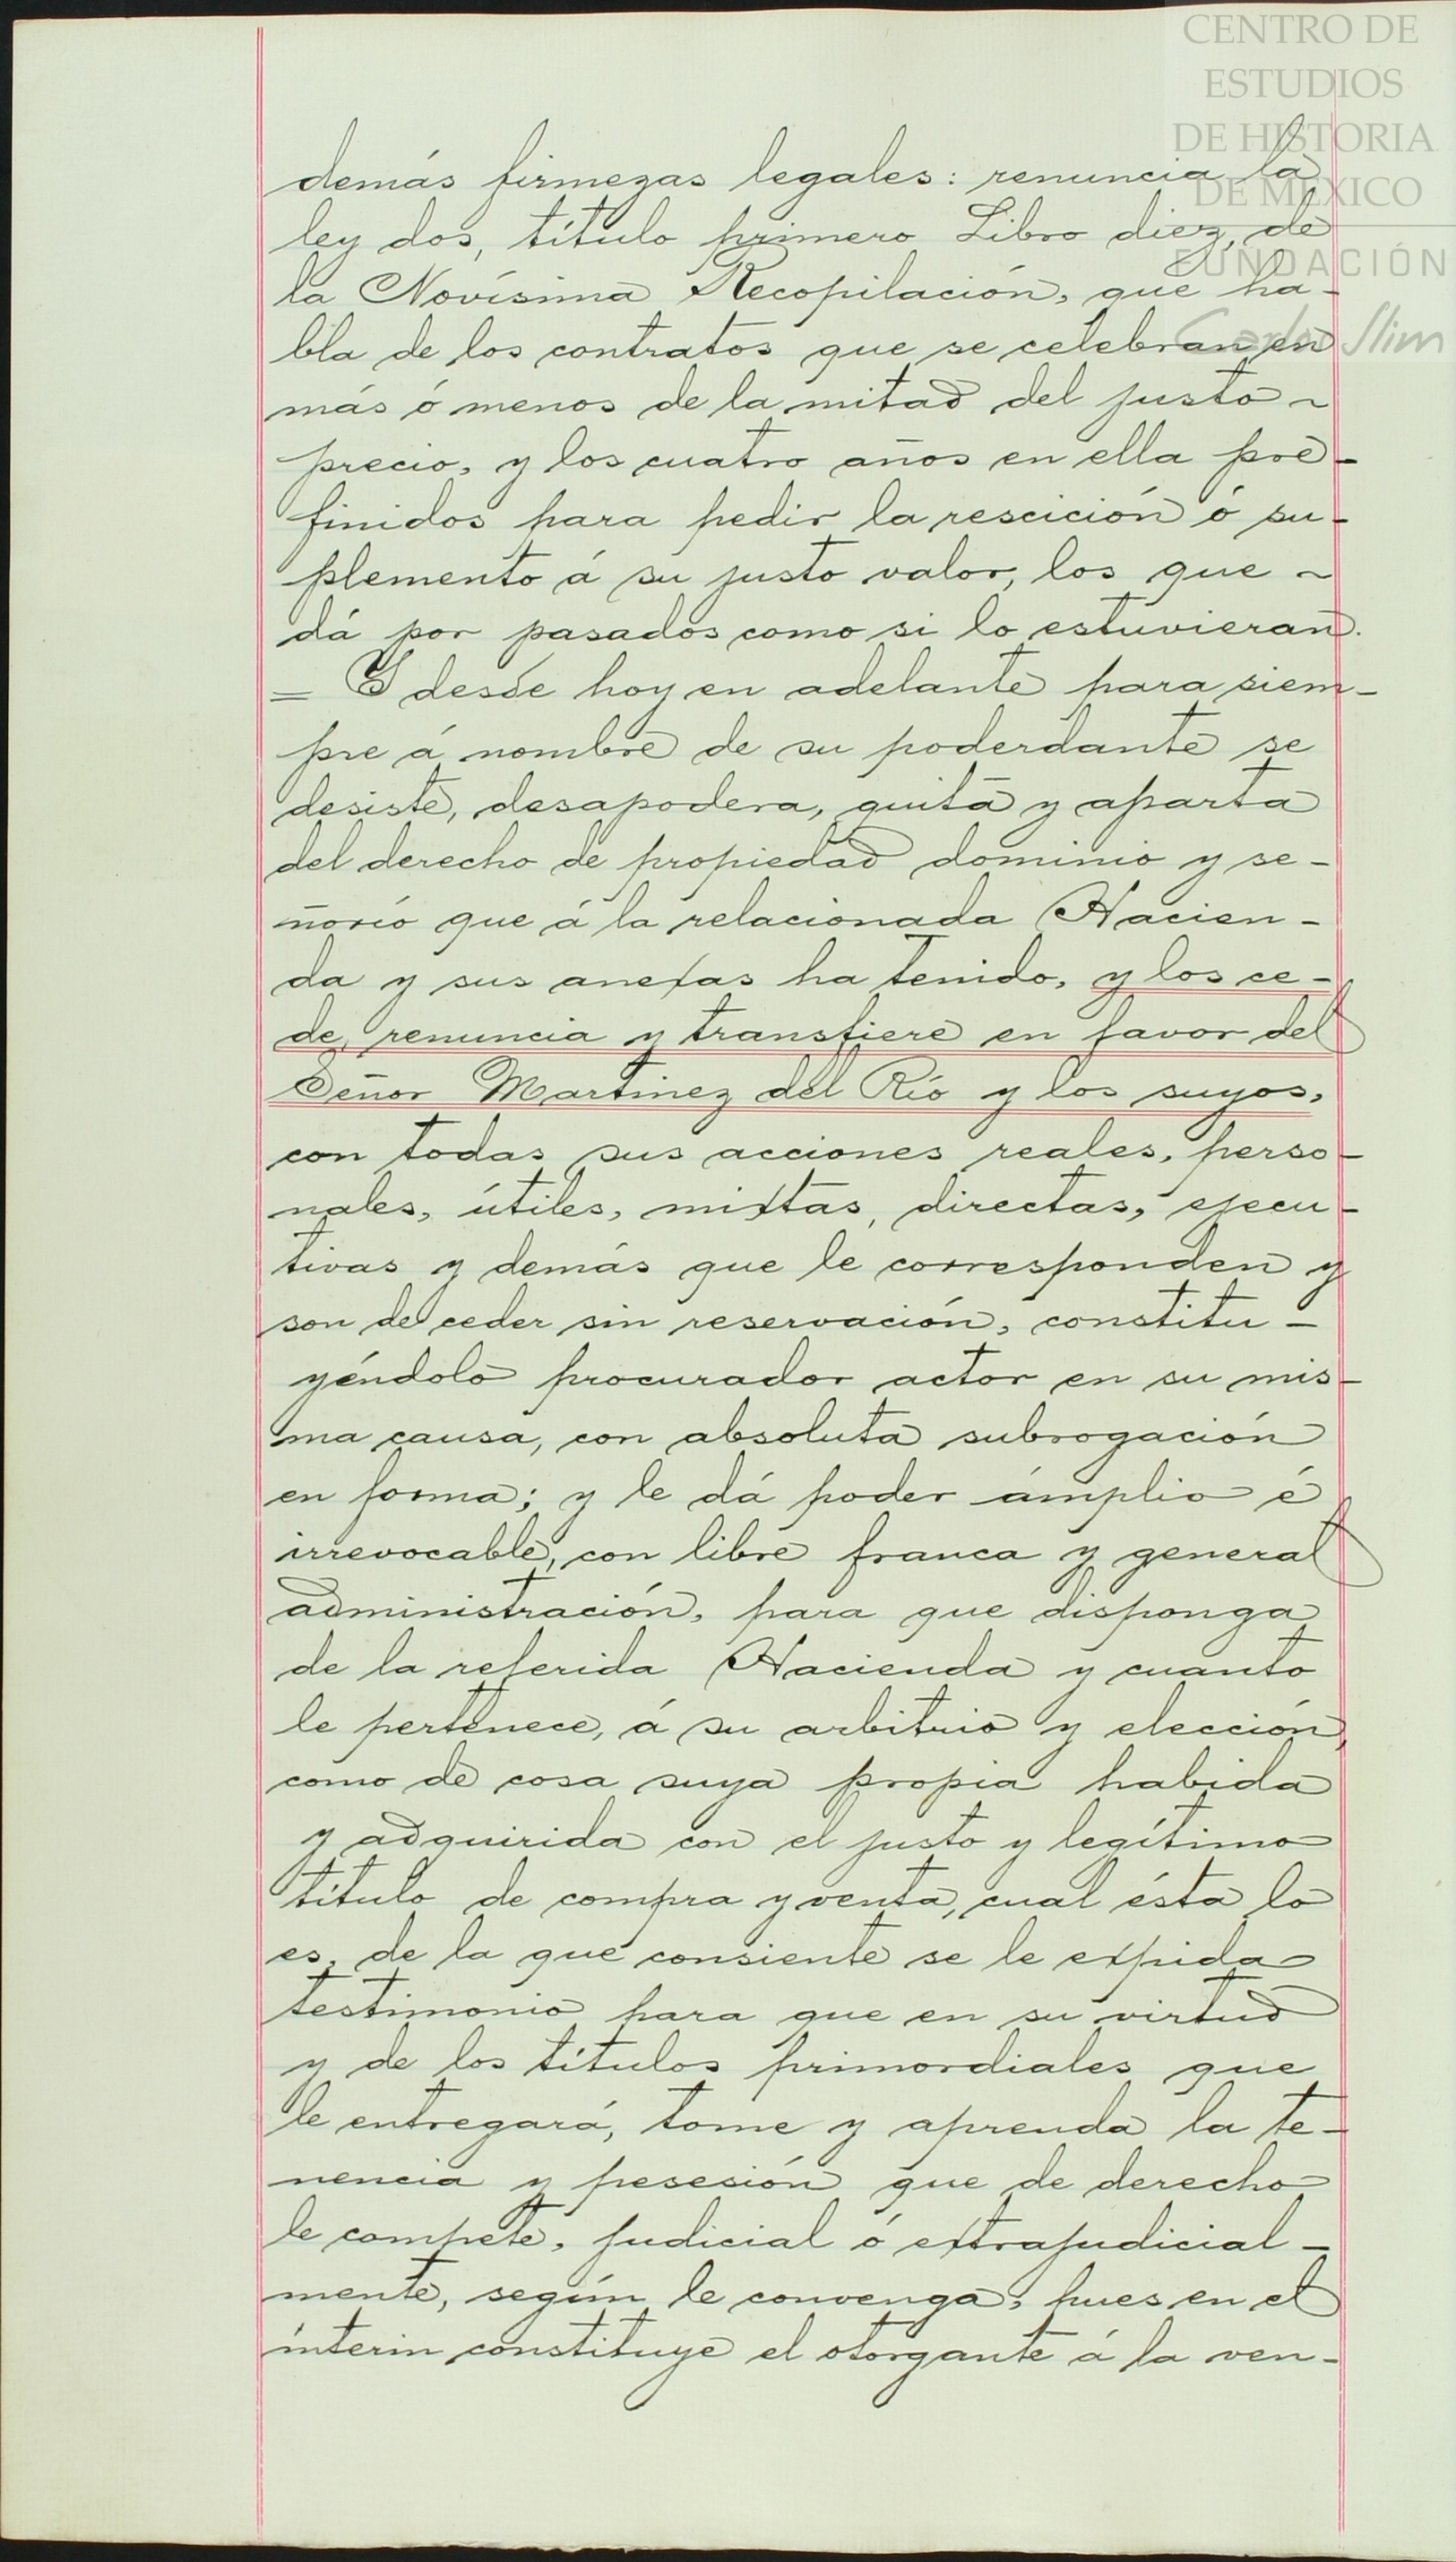 CENTRO DE
ESTUDIOS
DE HISTORIA
DE MÉXICO
FUNDACIÓN
Carlos Slim
demás firmezas legales: renuncia la
ley dos, título primero Libro diez, de
la Novísima Recopilación, que ha-
bla de los contratos que se celebran en
más ó menos de la mitad del justo ~
precio, y los cuatro años en ella pre-
finidos para pedir la rescición ó su-
plemento á su justo valor, los que ~
dá por pasados como si lo estuvieran.
= Y desde hoy en adelante para siem-
pre á nombre de su poderdante se
desiste, desapodera, quita y aparta
del derecho de propiedad dominio y se-
ñorío que á la relacionada Hacien-
da y sus anexas ha tenido, y los ce-
de, renuncia y transfiere en favor del
Señor Martinez del Río y los suyos,
con todas sus acciones reales, perso-
nales, útiles, mixtas, directas, ejecu-
tivas y demás que le corresponden y
son de ceder sin reservación, constitu-
yéndolo procurador actor en su mis-
ma causa, con absoluta subrogación
en forma; y le dá poder ámplio é
irrevocable, con libre franca y general
administración, para que disponga
de la referida Hacienda y cuanto
le pertenece, á su arbitrio y elección,
como de cosa suya propia habida
y adquirida con el justo y legítimo
título de compra y venta, cual ésta lo
es, de la que consiente se le expida
testimonio para que en su virtud
y de los títulos primordiales que
le entregará, tome y aprenda la te-
nencia y pesesión que de derecho
le compete, judicial ó extrajudicial-
mente, según le convenga, pues en el
ínterin constituye el otorgante á la ven-